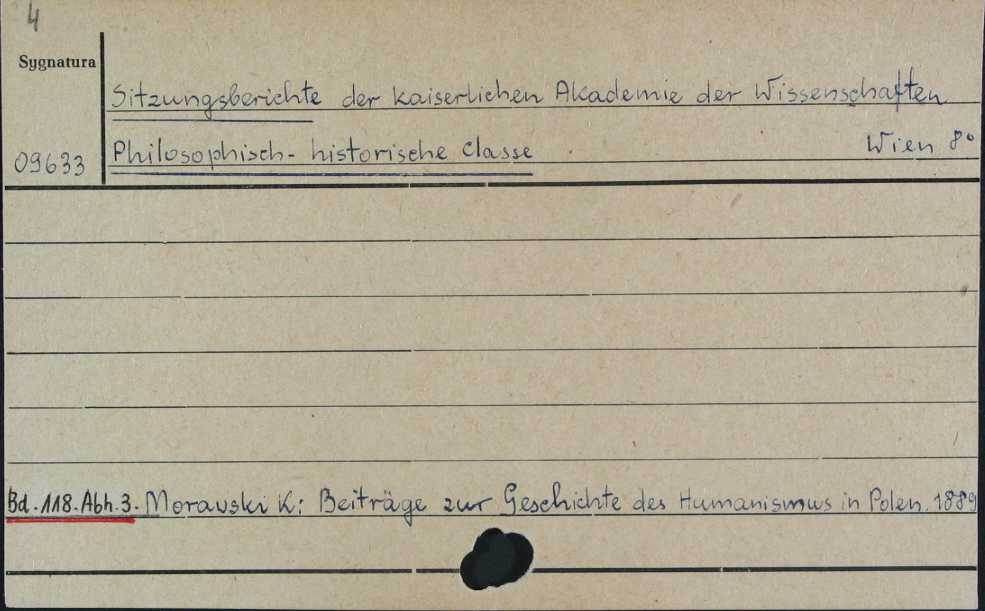 4
Sygnatura
Sitzungsberichte der kaiserlichen Akademie der Wissenschaften
09633 Philosophisch-historische Classe Wien 8°
Bd.118.Abh.3. Morawski K: Beiträge zur Geschichte des Humanismus in Polen. 1889